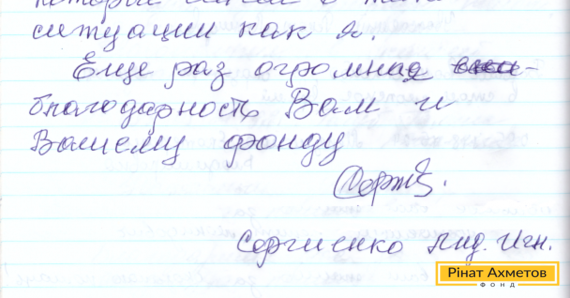 ситуации как я.
Еще раз огромная
благодарность Вам и
Вашему фонду
Сергиенко Лид. Игн.
Рінат Ахметов
ФОНД